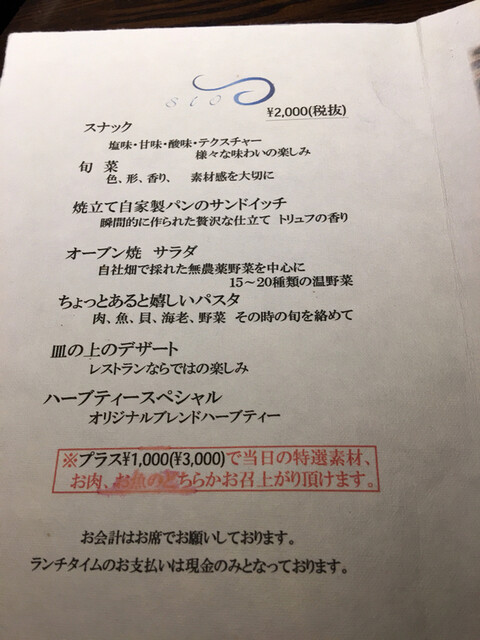 sio
¥2,000(税抜)
スナック
塩味・甘味・酸味・テクスチャー
様々な味わいの楽しみ
旬 菜
色、形、香り、 素材感を大切に
焼立て自家製パンのサンドイッチ
瞬間的に作られた贅沢な仕立て トリュフの香り
オーブン焼 サラダ
自社畑で採れた無農薬野菜を中心に
15～20種類の温野菜
ちょっとあると嬉しいパスタ
肉、魚、貝、海老、野菜 その時の旬を絡めて
皿の上のデザート
レストランならではの楽しみ
ハーブティースペシャル
オリジナルブレンドハーブティー
※プラス¥1,000(¥3,000)で当日の特選素材、
お肉、お魚のどちらかお召上がり頂けます。
お会計はお席でお願いしております。
ランチタイムのお支払いは現金のみとなっております。